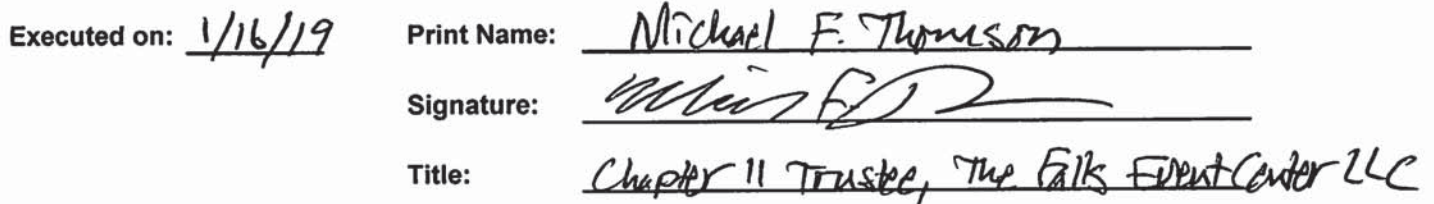 Executed on: 1/16/19 Print Name: Michael F. Thomson
Signature:
Title: Chapter 11 Trustee, The Falls Event Center LLC